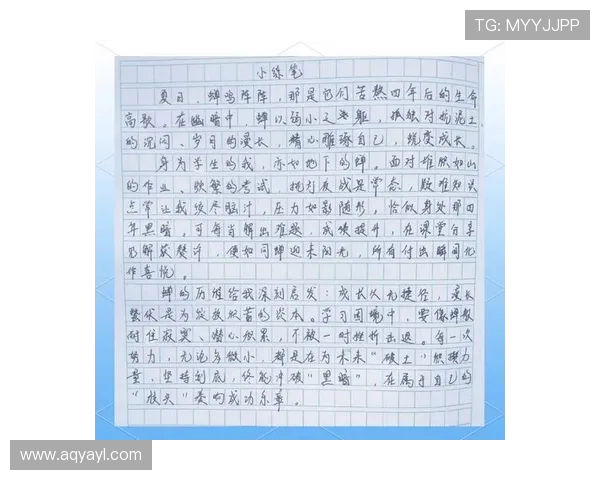 TG: MYYJJPP
小练笔
夏日，蝉鸣阵阵，那是它们苦熬四年后的生命
高歌。在幽暗中，蝉以弱小之躯，孤独对抗泥土
的沉闷、岁月的漫长，精心雕琢自己，蜕变成长。
身为学生的我，亦如地下的蝉。面对堆积如山
的作业、频繁的考试，挑灯夜战是常态，疑难知识
点常让我绞尽脑汁，压力如影随形，恰似身处那四
年黑暗。可每当解出难题，成绩提升，在课堂分享
见解获赞许，便如同蝉迎来阳光，所有付出瞬间化
作喜悦。
蝉的历难给我深刻启发：成长从无捷径，漫长
蛰伏是为发放积蓄的资本。学习困境中，要像蝉般
耐住寂寞、潜心积累，不被一时挫折击退。每一次
努力，无论多微小，都是在为未来“破土”积攒力
量，坚持到底，终能冲破“黑暗”，在属于自己的
“枝头”奏响成功乐章。
www.aqyayl.com